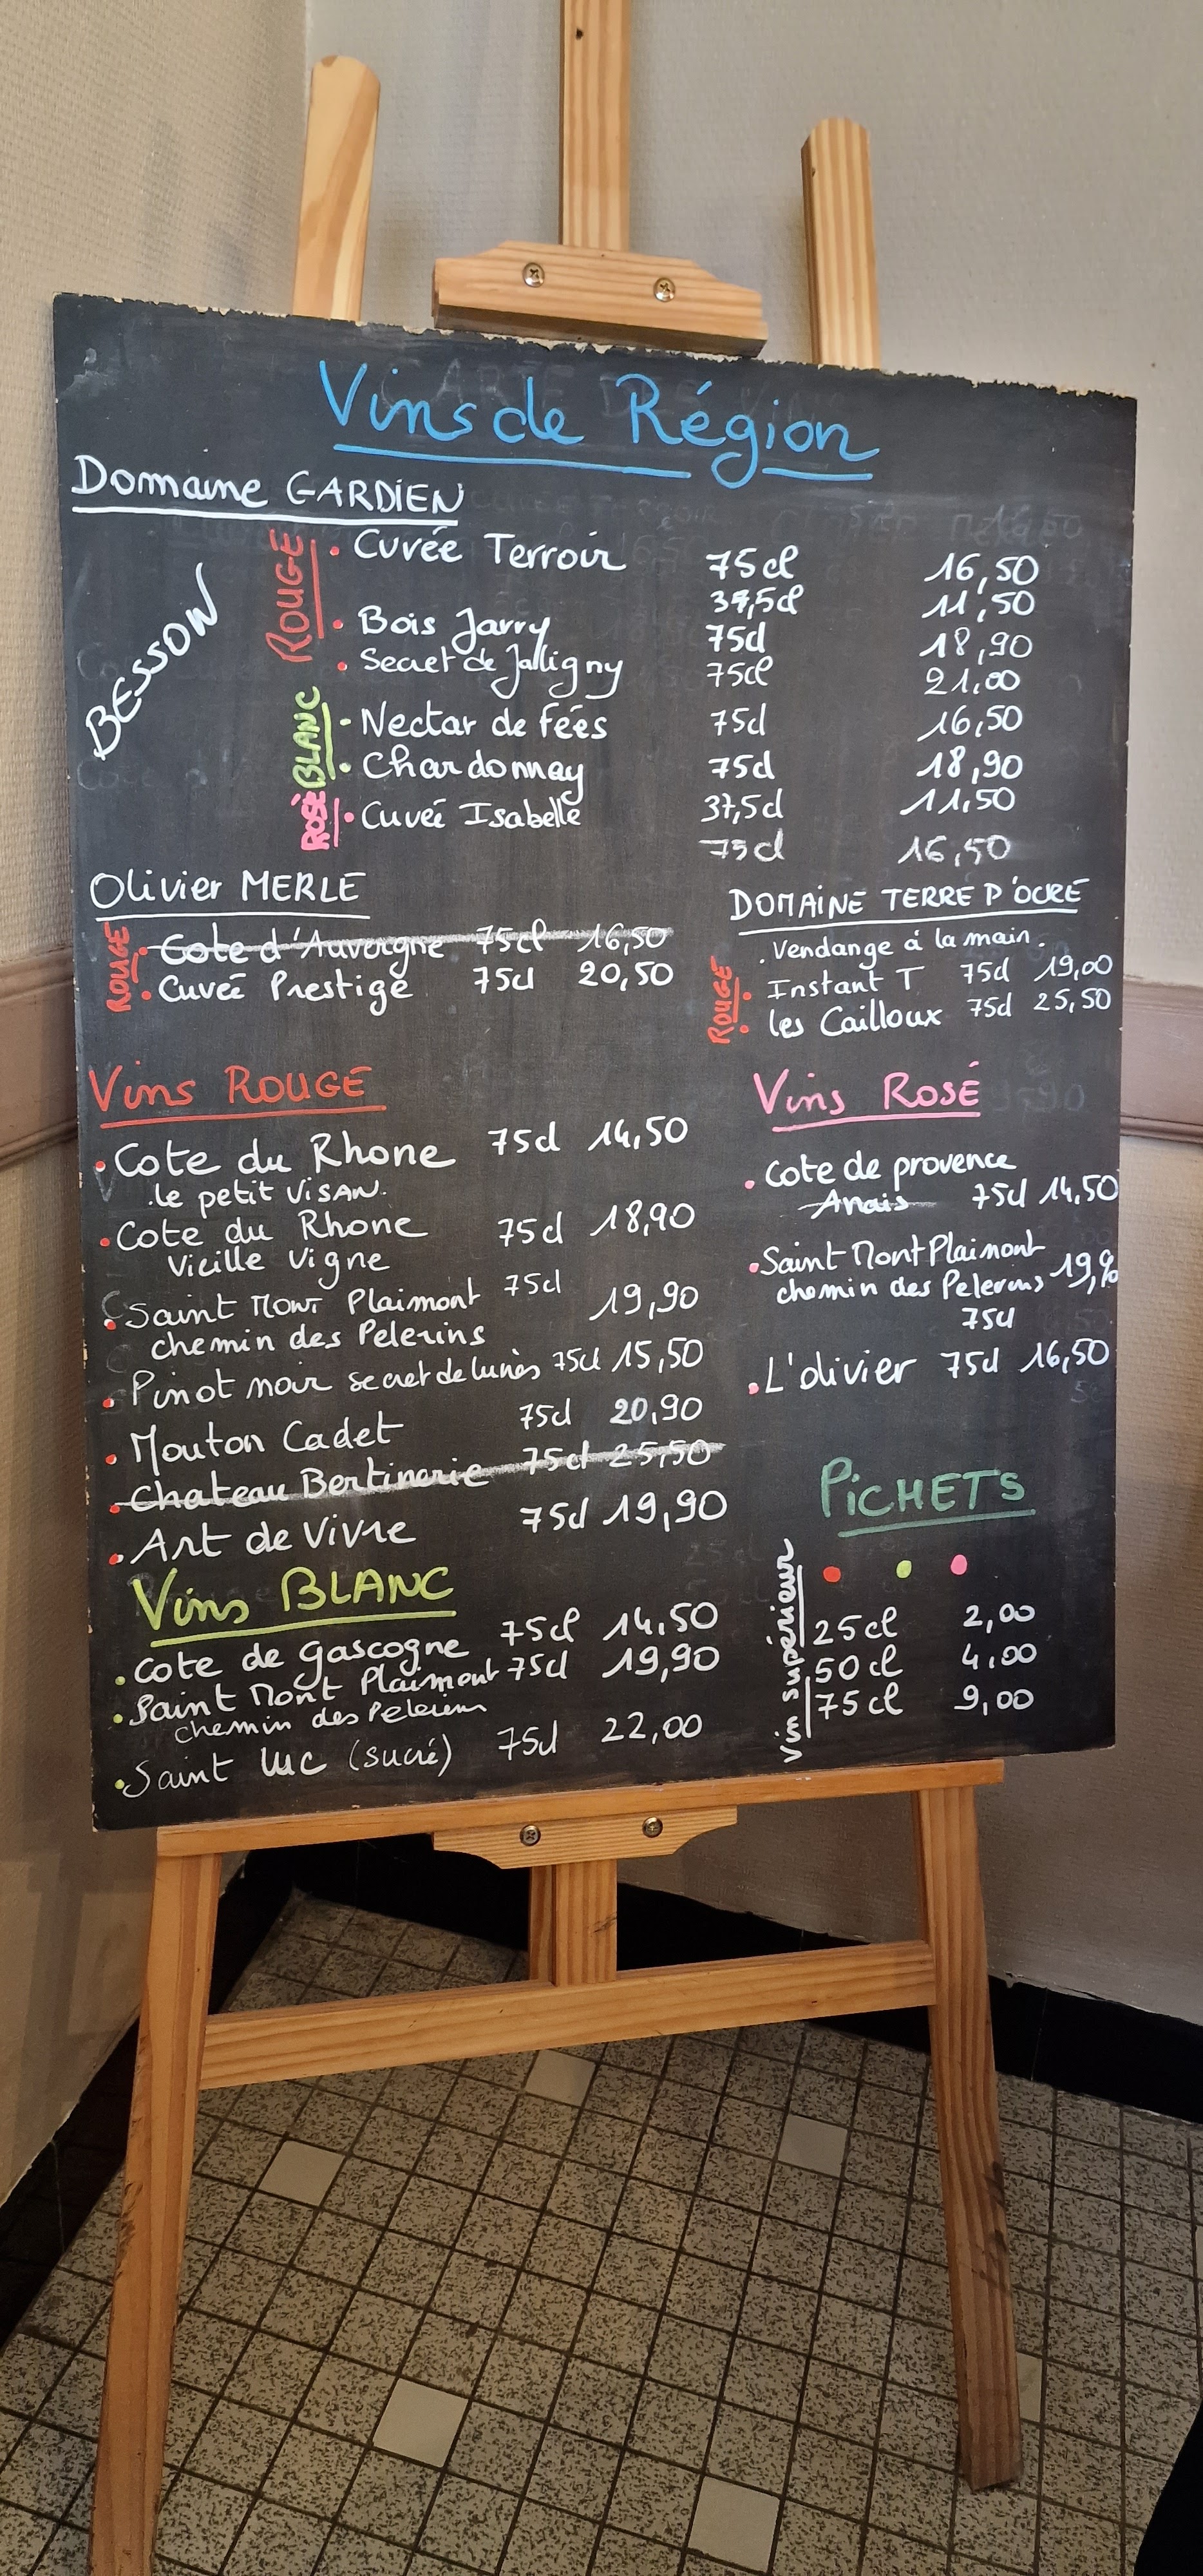 Vins de Région
Domaine GARDIEN
BESSON
ROUGE
• Cuvée Terroir 75cl 16,50
37,5cl 11,50
• Bois Jarry 75cl 18,90
• Secret de Jalligny 75cl 21,00
BLANC
- Nectar de fées 75cl 16,50
• Chardonnay 75cl 18,90
ROSÉ
• Cuveé Isabelle 37,5cl 11,50
75cl 16,50
Olivier MERLE
ROUGE
• Cote d'Auvergne 75cl 16,50
• Cuveé Prestige 75cl 20,50
DOMAINE TERRE D'OCRE
. Vendange à la main.
ROUGE
• Instant T 75cl 19,00
• les Cailloux 75cl 25,50
Vins ROUGE
• Cote du Rhone 75cl 14,50
. le petit VISAN.
• Cote du Rhone 75cl 18,90
Vieille Vigne
• Saint Mont Plaimont 75cl 19,90
chemin des Pelerins
• Pinot noir secret de lunès 75cl 15,50
• Mouton Cadet 75cl 20,90
• Chateau Bertinerie 75cl 25,50
• Art de Vivre 75cl 19,90
Vins BLANC
• Cote de gascogne 75cl 14,50
• Saint Mont Plaimont 75cl 19,90
chemin des Pelerins
• Saint Luc (sucré) 75cl 22,00
Vins ROSÉ
• Cote de provence
Anais 75cl 14,50
• Saint Mont Plaimont
chemin des Pelerins 19,90
75cl
• L'olivier 75cl 16,50
PICHETS
Vin supérieur
25cl 2,00
50cl 4,00
75cl 9,00